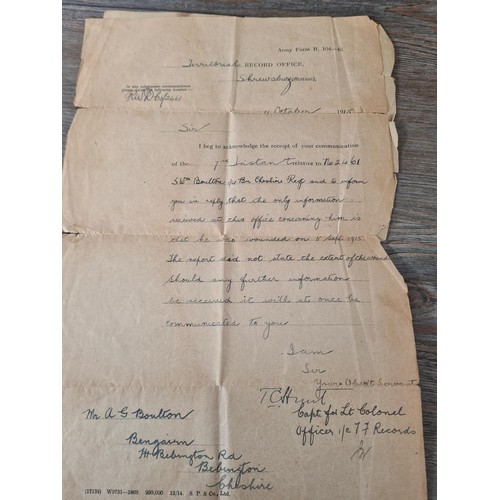 Army Form B. 104—
Territorial RECORD OFFICE,
Shrewsbury
October 1915
Sir
I beg to acknowledge the receipt of your communication
of the 7th Instant relative to No 2461
Boulton Bn Cheshire Reg and to inform
you in reply that the only information
received at this office concerning him is
that he was wounded on 5 Sept 1915
The report did not state the extent of the wound
Should any further information
be received it will at once be
communicated to you
I am
Sir
Your Obedt Servant
Capt for Lt Colonel
Officer i/c T F Records
Mr A G Boulton
Bebington Rd
Bebington
Cheshire
200,000 12/14 S. P. & Co., Ltd.